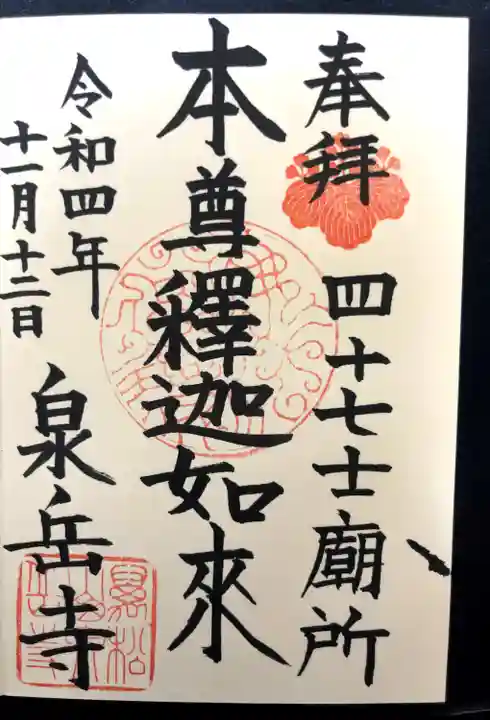 奉拝
四十七士廟所
本尊釋迦如來
令和四年
十一月十二日
泉岳寺